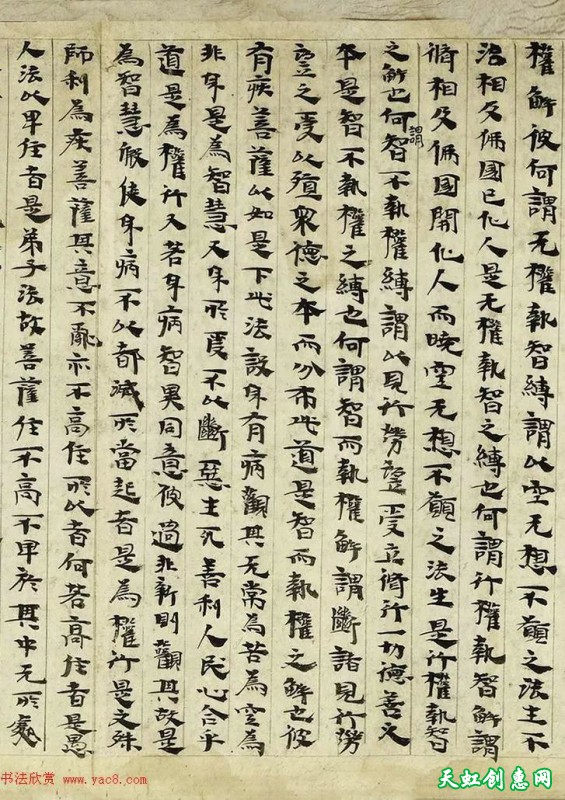 權解彼何謂无權執智縛謂以空无想不願之法生不
治相及佛國已化人是无權執智之縛也何謂行權執智解謂
脩相及佛國開化人而曉空无想不願之法生是行權執智
之解也何謂智不執權縛謂以見行勞望受立脩行一切德善之
本是智不執權之縛也何謂智而執權解謂斷諸見行勞
望之受以殖衆德之本而分布此道是智而執權之解也彼
有疾菩薩以如是下此法設身有病觀其无常為苦為空為
非身是為智慧又身所受不以斷惡生死善利人民心合乎
道是為權行又若身病智異同意彼過非新則觀其故是
為智慧假使身病不以都滅所當起者是為權行是文殊
師利為疾菩薩其意不亂亦不高住所以者何若高住者是愚
人法以卑住者是弟子法故菩薩住不高不卑於其中无所處
书法欣赏 www.yac8.com
天虹创惠网